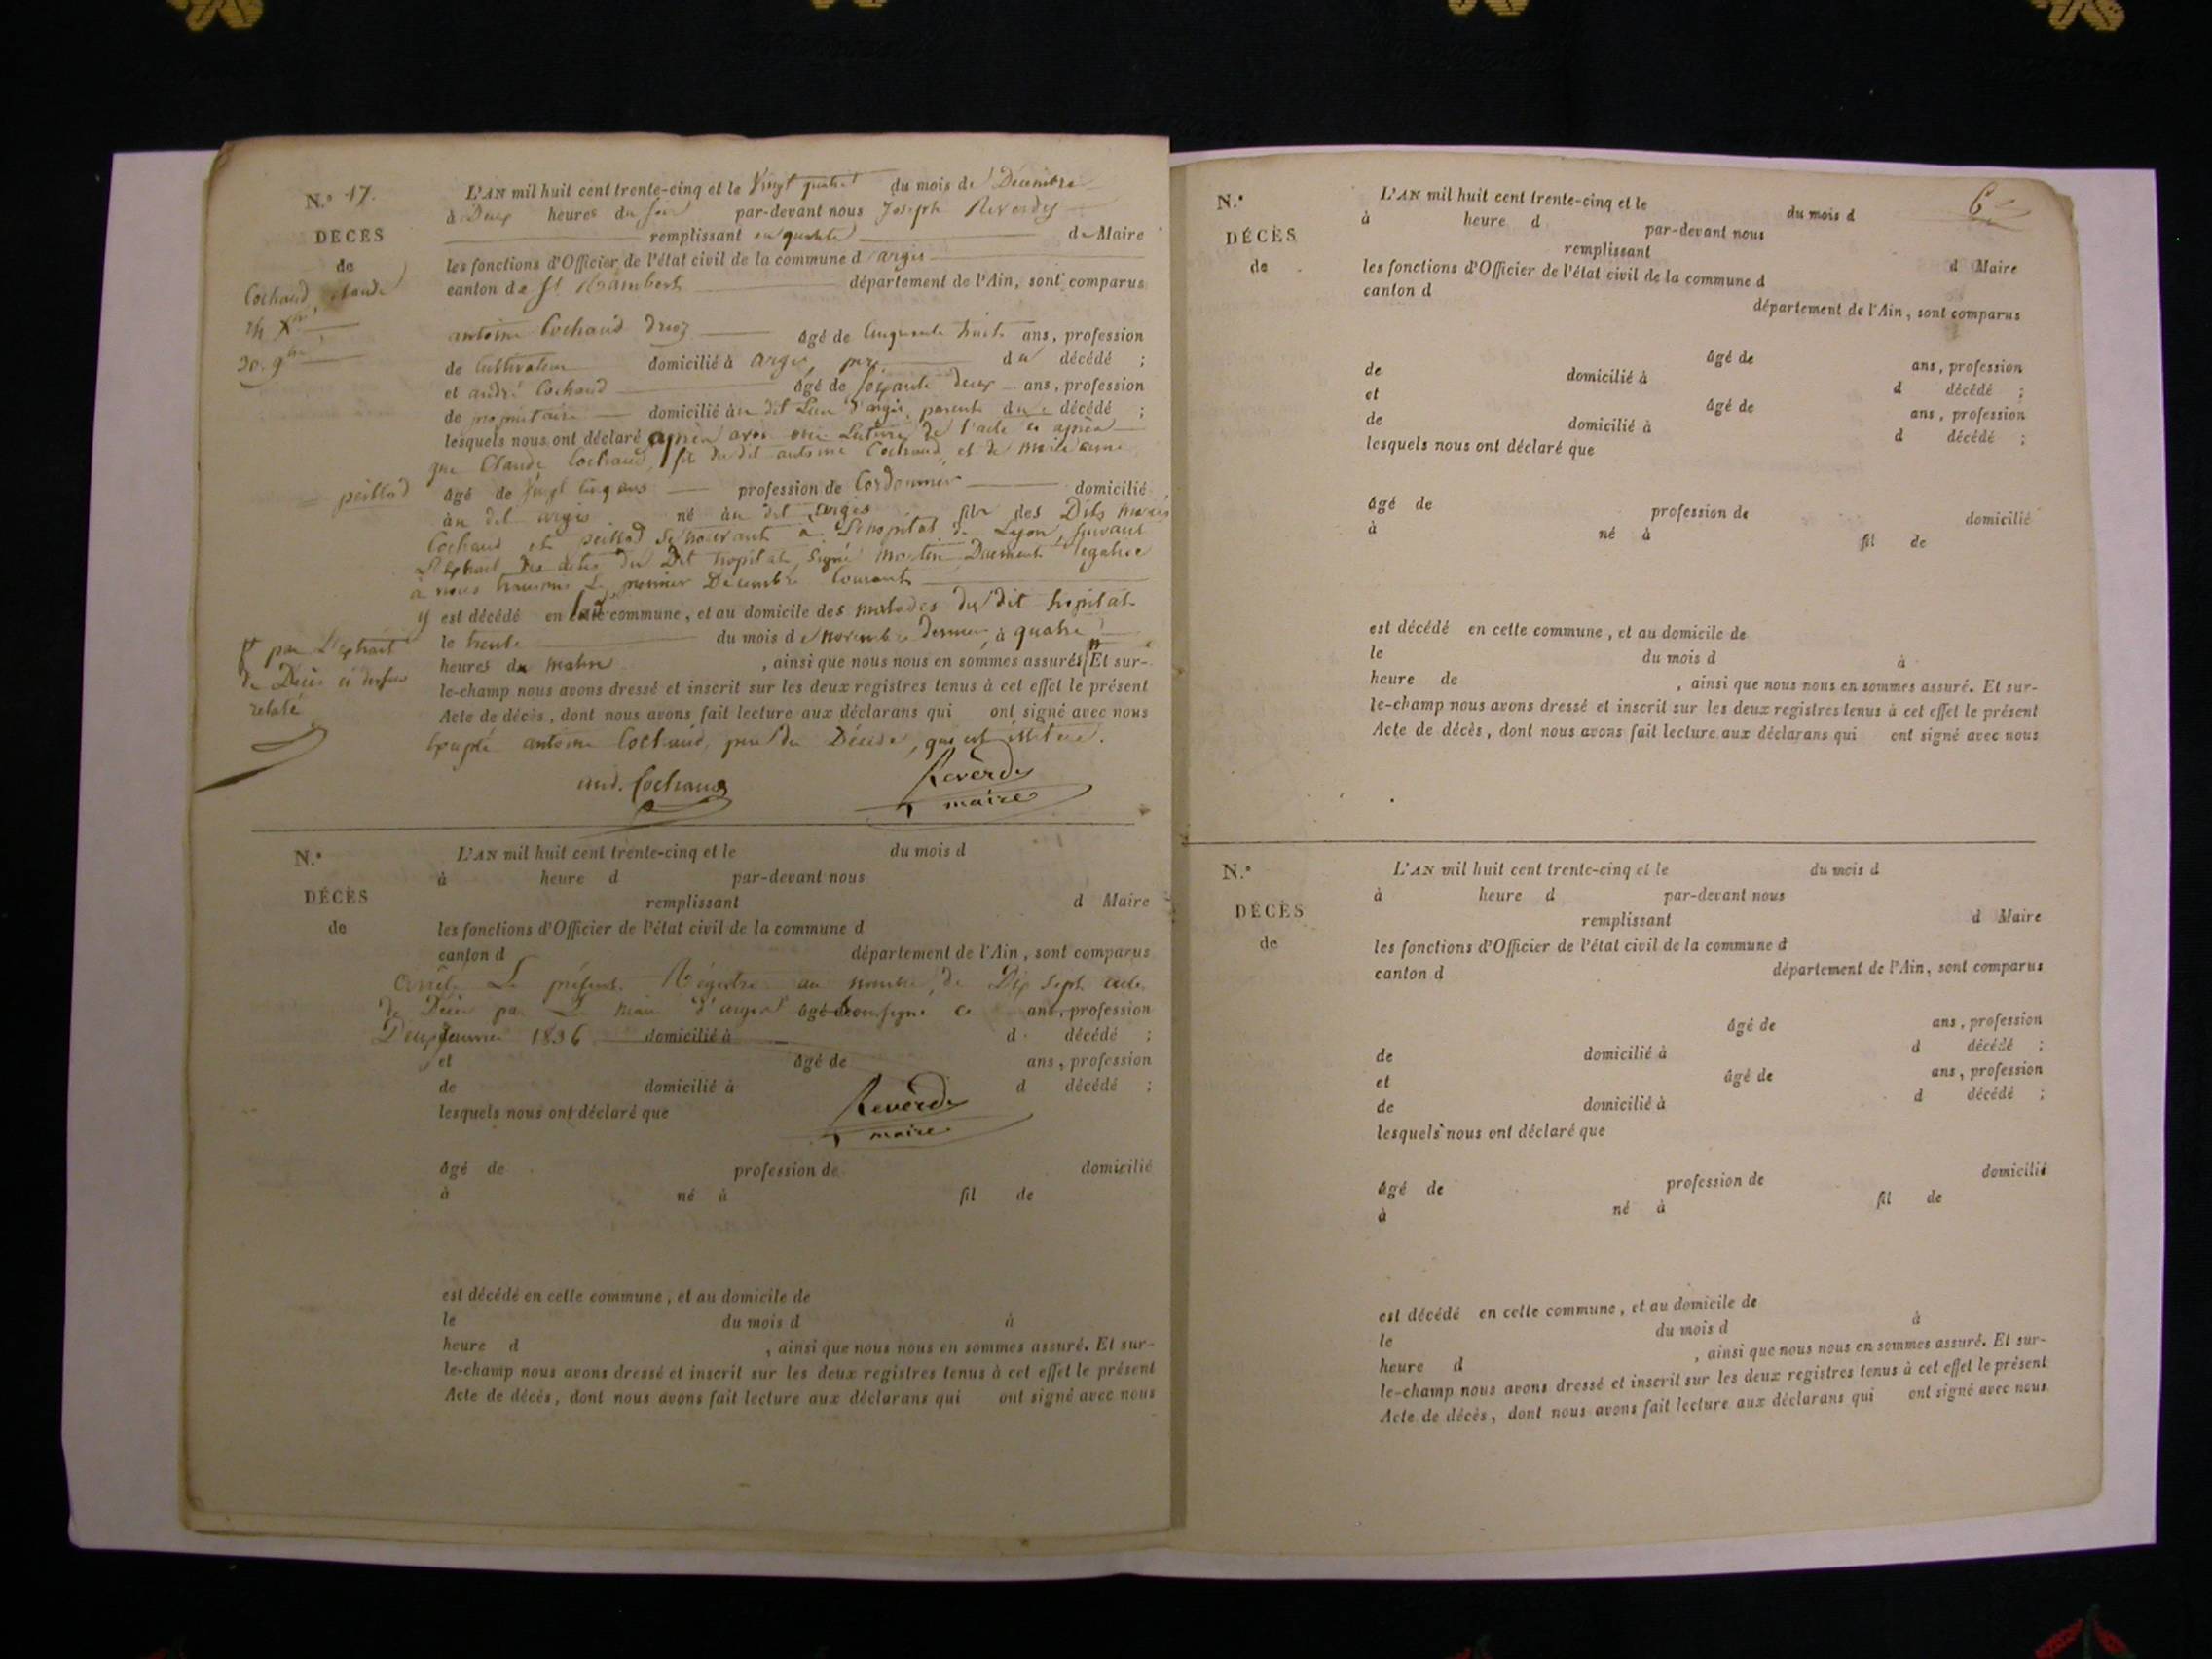 N.° 17.
DÉCÈS
de
Cochaud, Claude
24 Xbre
30. 9bre
L'AN mil huit cent trente-cinq et le Vingt quatre du mois de Décembre
à Deux heures du soir par-devant nous Joseph Reverdy
remplissant en qualité de Maire
les fonctions d'Officier de l'état civil de la commune d'argis
canton de St Rambert département de l'Ain, sont comparus
antoine Cochaud âgé de Cinquante huit ans, profession
de Cultivateur domicilié à argis, père du décédé ;
et andré Cochaud âgé de soixante deux ans, profession
de propriétaire domicilié au dit Lieu d'argis, parents du décédé ;
lesquels nous ont déclaré après avoir oui Lecture de l'acte ci après
que Claude Cochaud, fils du dit antoine Cochaud et de marie anne
peillod âgé de vingt cinq ans profession de Cordonnier domicilié
au dit argis né au dit argis fils des Dits mariés
Cochaud et peillod se trouvant à L'hopital de Lyon, suivant
L'extrait des actes du Dit hopital, signé Duement légalisé
à nous transmis Le premier Décembre Courant
y est décédé en ladite commune, et au domicile des malades du dit hopital
le trente du mois de novembre dernier, à quatre
heures du matin, ainsi que nous nous en sommes assurés Et sur-
par L'extrait
de Décès ci dessus
relaté
le-champ nous avons dressé et inscrit sur les deux registres tenus à cet effet le présent
Acte de décès, dont nous avons fait lecture aux déclarans qui ont signé avec nous
Excepté antoine Cochaud, père du Décédé, qui est illitéré.
and. Cochaud
Reverdy
maire
N.°
DÉCÈS
de
L'AN mil huit cent trente-cinq et le du mois d
à heure d par-devant nous
remplissant d Maire
les fonctions d'Officier de l'état civil de la commune d
canton d département de l'Ain, sont comparus
Arrêté Le présent Régistre au nombre de Dix Sept actes
de Décès par Le maire d'argis soussigné ce
âgé de ans, profession
Deux janvier 1836 domicilié à d décédé ;
et âgé de ans, profession
de domicilié à d décédé ;
lesquels nous ont déclaré que
Reverdy
maire
âgé de profession de domicilié
à né à fil de
est décédé en cette commune, et au domicile de
le du mois d à
heure d , ainsi que nous nous en sommes assuré. Et sur-
le-champ nous avons dressé et inscrit sur les deux registres tenus à cet effet le présent
Acte de décès, dont nous avons fait lecture aux déclarans qui ont signé avec nous
6
N.°
DÉCÈS
de
L'AN mil huit cent trente-cinq et le du mois d
à heure d par-devant nous
remplissant d Maire
les fonctions d'Officier de l'état civil de la commune d
canton d département de l'Ain, sont comparus
âgé de ans, profession
de domicilié à d décédé ;
et âgé de ans, profession
de domicilié à d décédé ;
lesquels nous ont déclaré que
âgé de profession de domicilié
à né à fil de
est décédé en cette commune, et au domicile de
le du mois d à
heure de , ainsi que nous nous en sommes assuré. Et sur-
le-champ nous avons dressé et inscrit sur les deux registres tenus à cet effet le présent
Acte de décès, dont nous avons fait lecture aux déclarans qui ont signé avec nous
N.°
DÉCÈS
de
L'AN mil huit cent trente-cinq et le du mois d
à heure d par-devant nous
remplissant d Maire
les fonctions d'Officier de l'état civil de la commune d
canton d département de l'Ain, sont comparus
âgé de ans, profession
de domicilié à d décédé ;
et âgé de ans, profession
de domicilié à d décédé ;
lesquels nous ont déclaré que
âgé de profession de domicilié
à né à fil de
est décédé en cette commune, et au domicile de
le du mois d à
heure d , ainsi que nous nous en sommes assuré. Et sur-
le-champ nous avons dressé et inscrit sur les deux registres tenus à cet effet le présent
Acte de décès, dont nous avons fait lecture aux déclarans qui ont signé avec nous